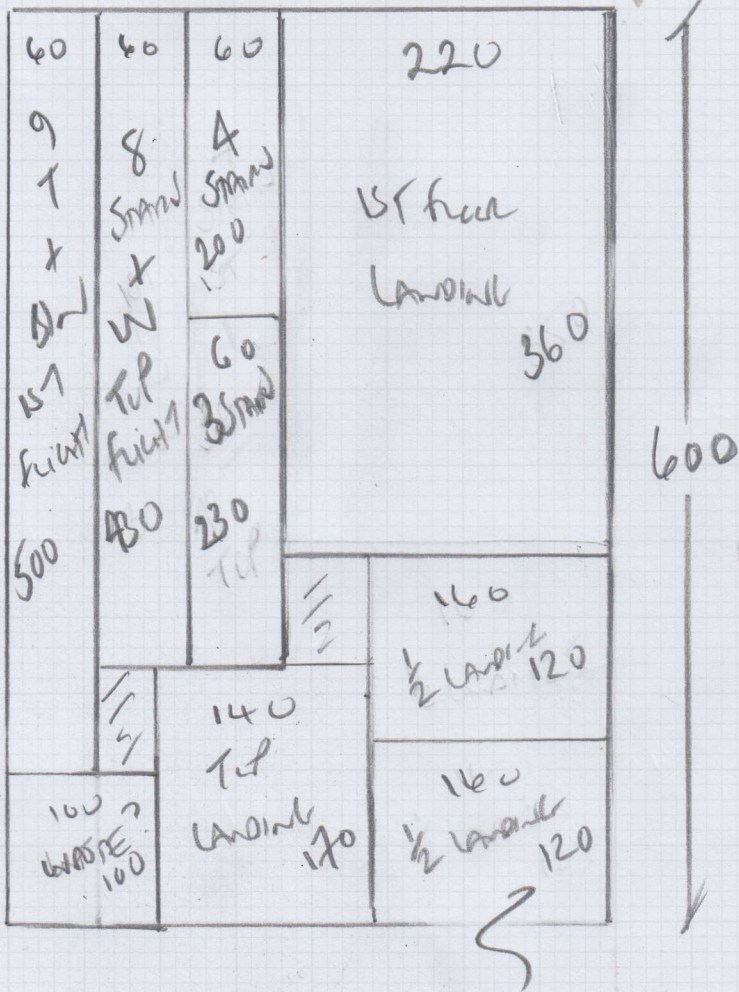 60
9
T
X
1ST
FLIGHT
500
60
8
STAIRS
X
TOP
FLIGHT
430
60
4
STAIRS
200
60
3 STAIRS
230
TOP
220
1ST FLOOR
LANDING
360
600
160
1/2 LANDING
120
140
TOP
LANDING
170
160
1/2 LANDING
120
100
WASTE
100